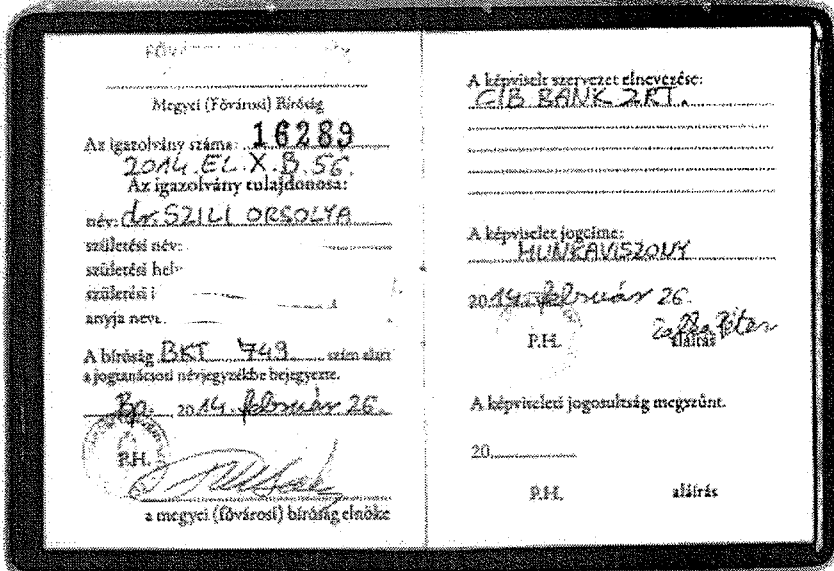 Megyei (Fővárosi) Bíróság
Az igazolvány száma: 16289
2014.EL.X.B.56.
Az igazolvány tulajdonosa:
név: dr. SZILI ORSOLYA
születési név:
születési hely
születési i
anyja neve
A bíróság BKT 749 szám alatt
a jogtanácsosi névjegyzékbe bejegyezte.
Bp. 2014. február 26.
P.H.
a megyei (fővárosi) bíróság elnöke
A képviselt szervezet elnevezése:
CIB BANK ZRT.
A képviselet jogcíme:
MUNKAVISZONY
2014. február 26.
P.H. aláírás
A képviseleti jogosultság megszűnt.
20
P.H. aláírás